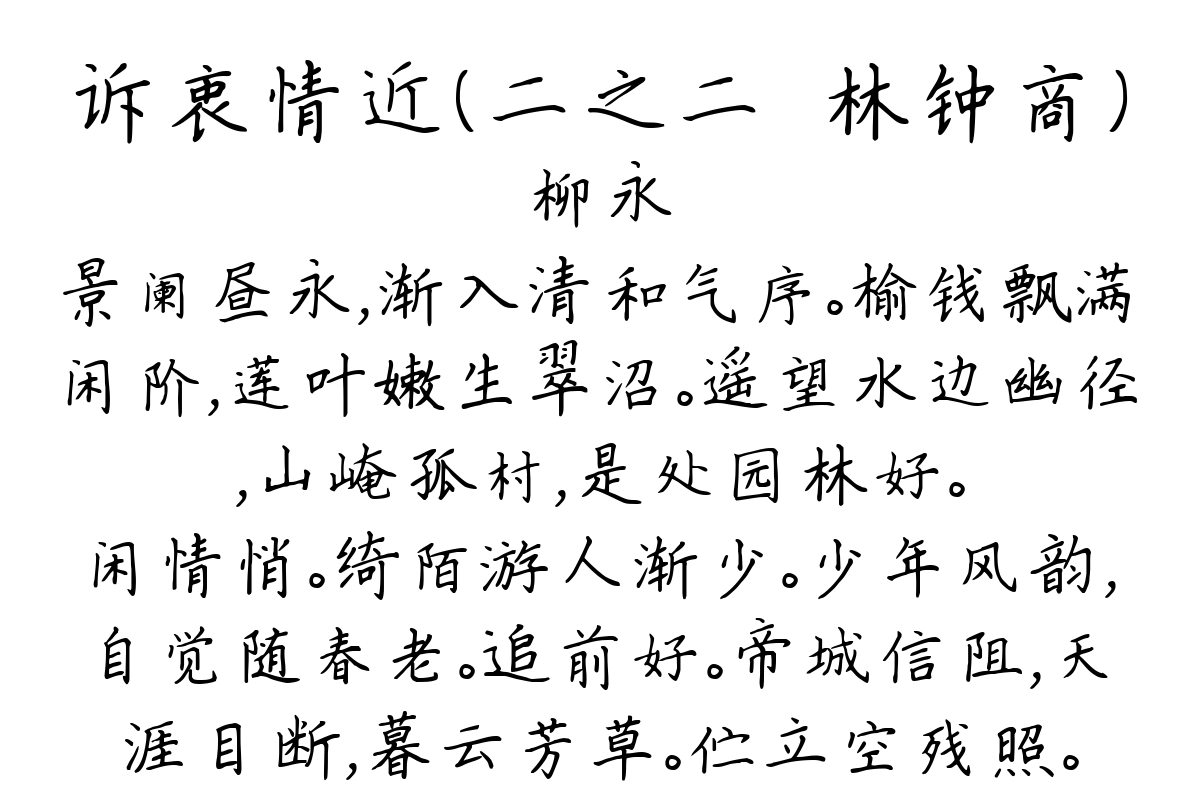 诉衷情近(二之二 林钟商)
柳永
景阑昼永,渐入清和气序。榆钱飘满
闲阶,莲叶嫩生翠沼。遥望水边幽径
,山崦孤村,是处园林好。
闲情悄。绮陌游人渐少。少年风韵,
自觉随春老。追前好。帝城信阻,天
涯目断,暮云芳草。伫立空残照。